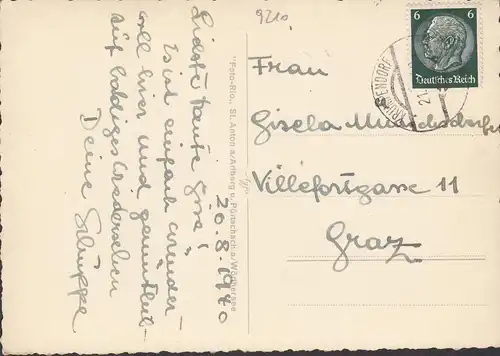 9210
20.8.1940
Liebste Tante Gisa!
Es ist einfach wunder-
voll hier und gemütlich.
Auf baldiges Wiedersehen
Deine
"Foto-Rio", St. Anton a/Arlberg u. Pörtschach a/Wörthersee
6 6
Deutsches Reich
KRUMPENDORF
21.
Frau
Gisela
Villefortgasse 11
Graz